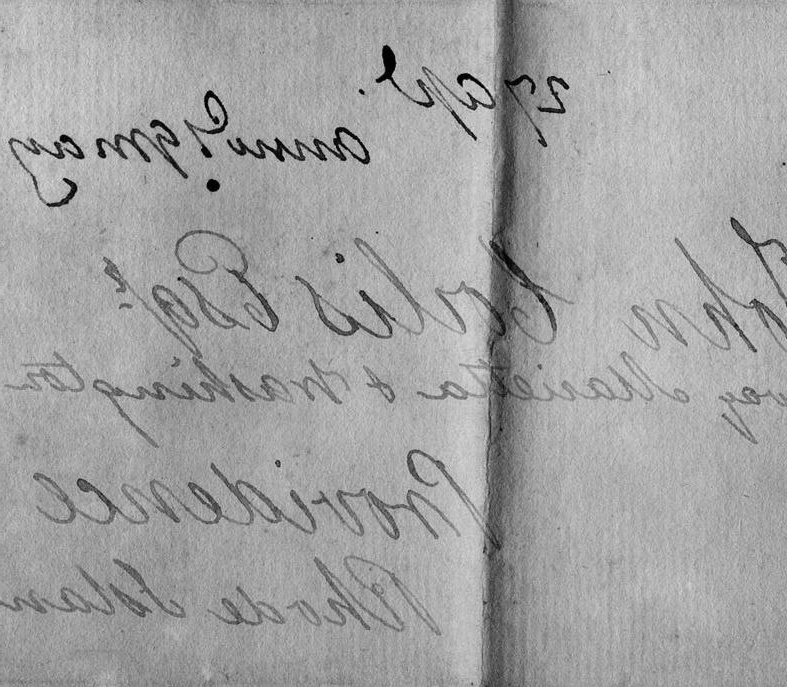 27 Apl.
answd 9 May
John Corlis Esqr.
way Marietta & Washington
Providence
Rhode Islan